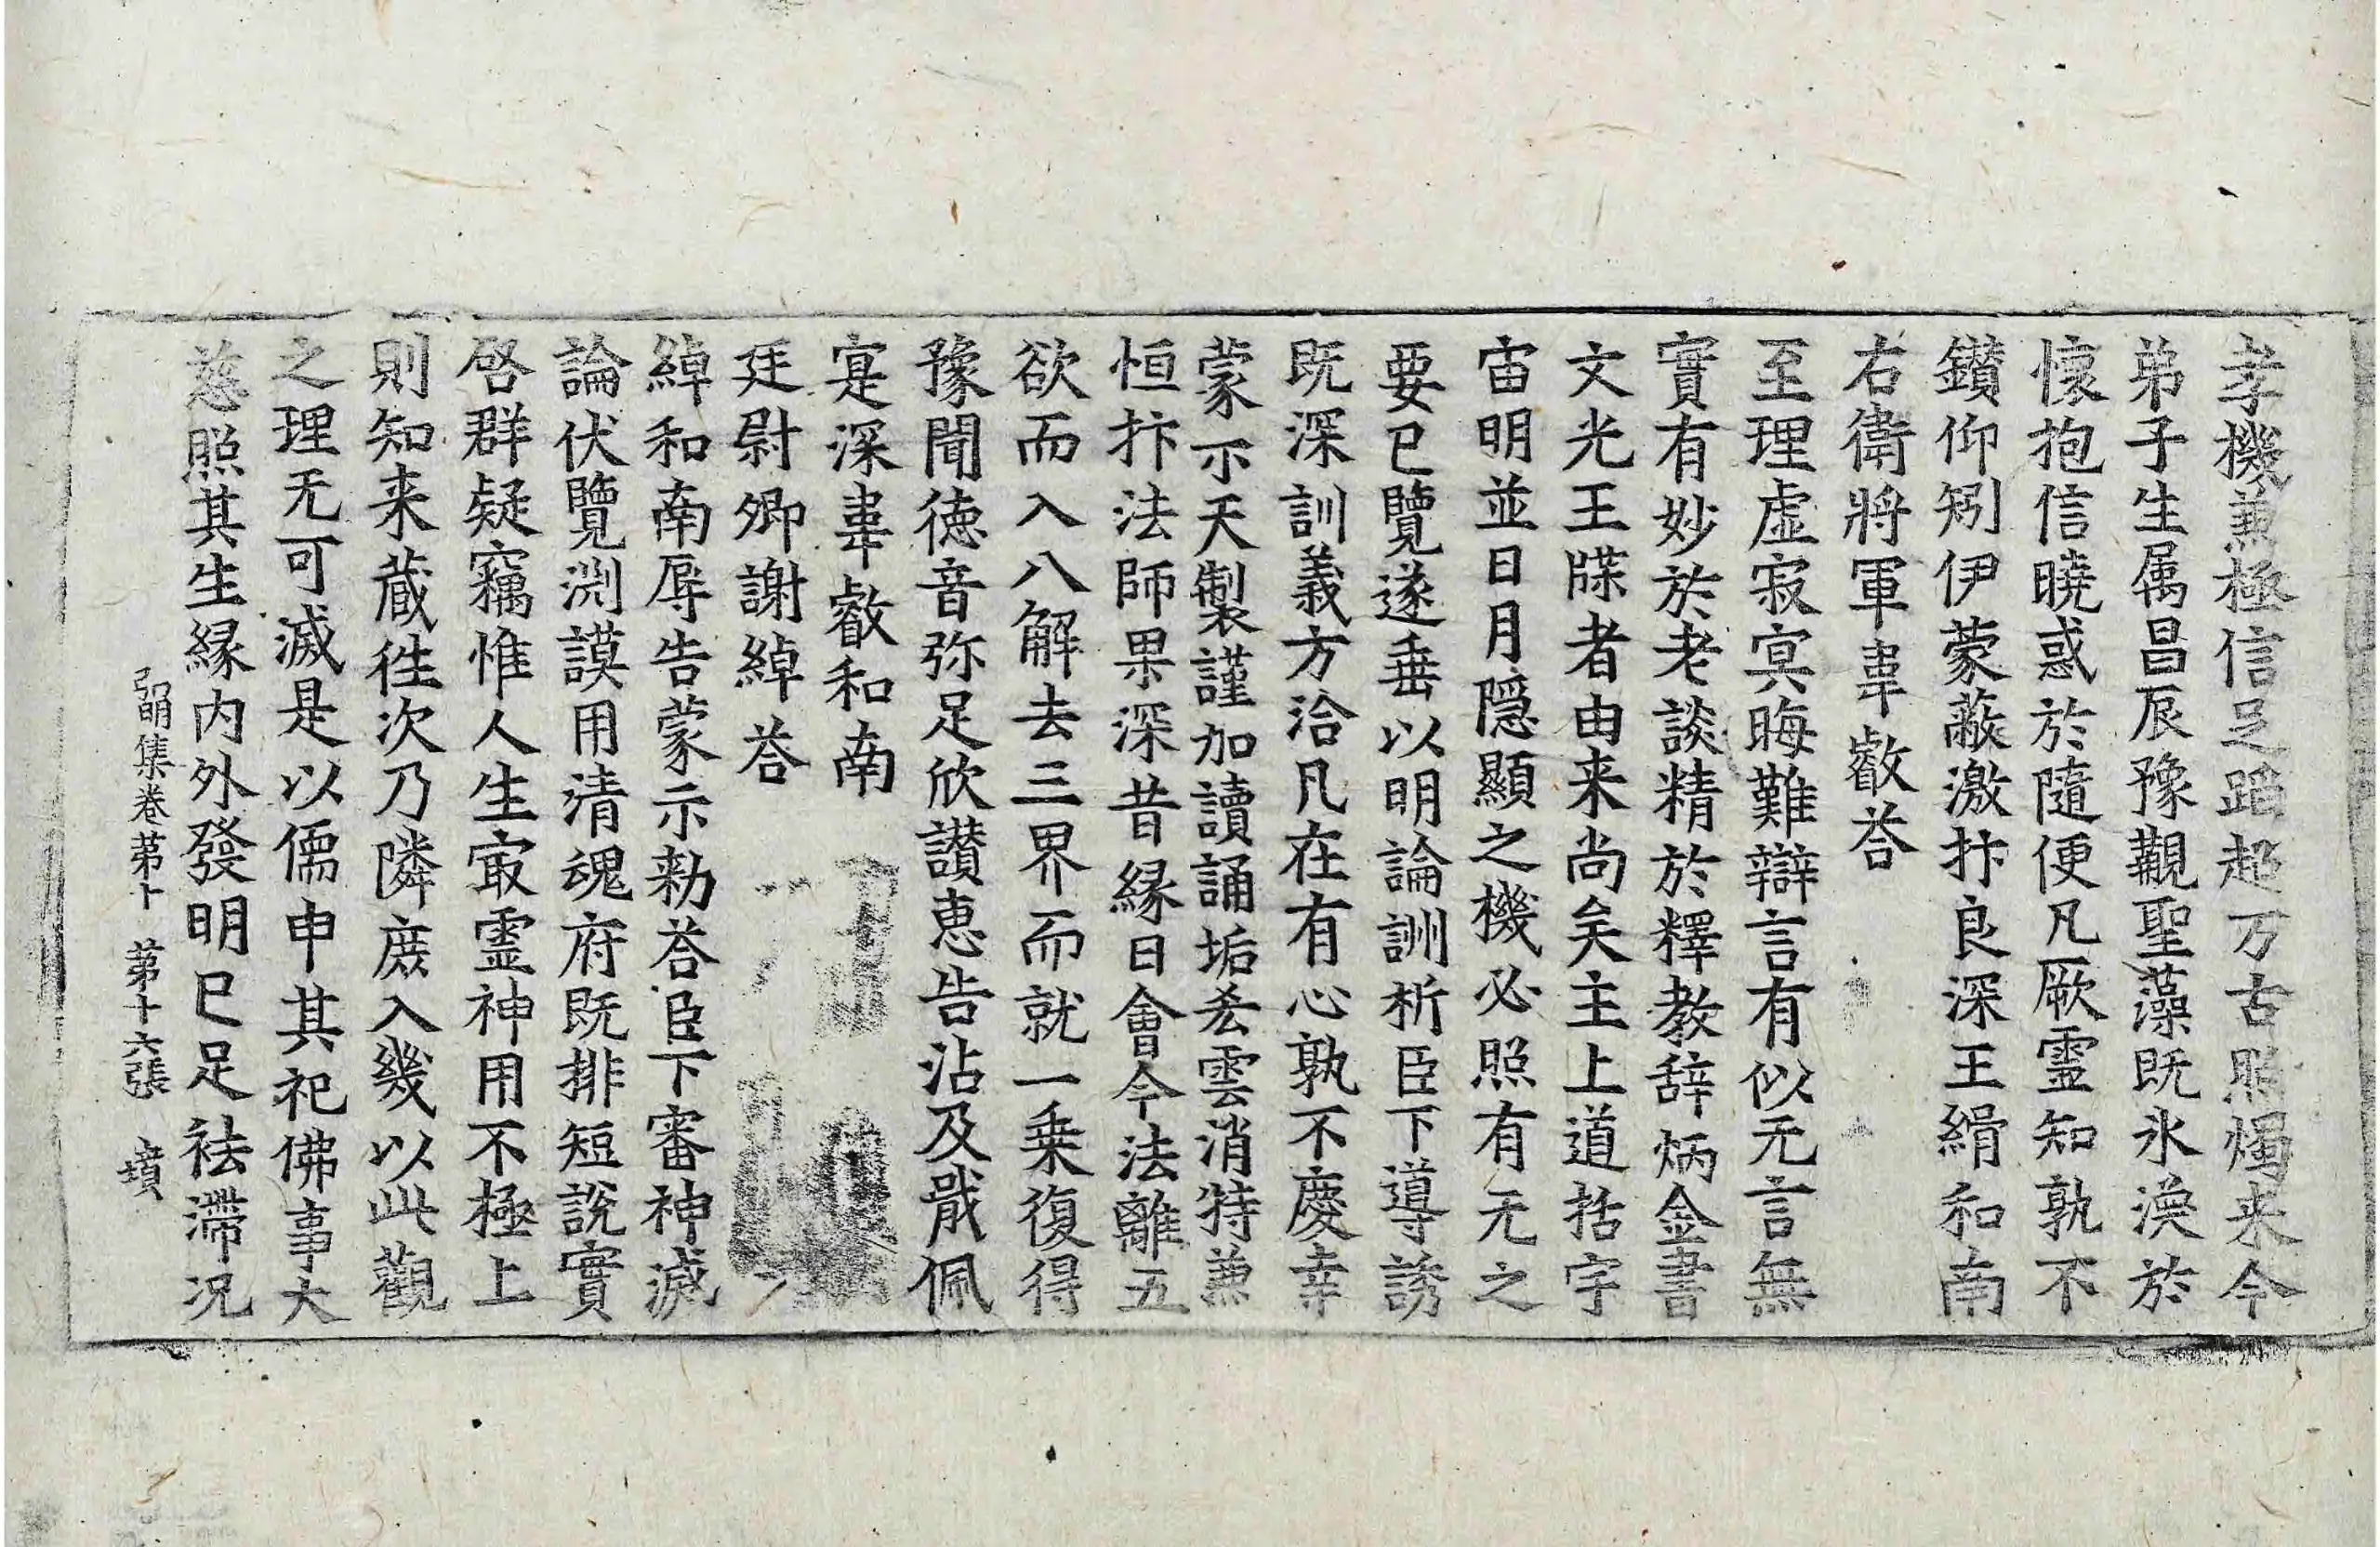 孝機兼極信足蹈超万古照燭来今
弟子生属昌辰豫觀聖藻既氷渙於
懷抱信曉惑於隨便凡厥靈知孰不
鑚仰矧伊蒙蔽激抃良深王緝和南
右衛將軍韋叡荅
至理虛寂冥晦難辯言有似无言無
實有妙於老談精於釋教辞炳金書
文光王牒者由来尚矣主上道括宇
宙明並日月隱顯之機必照有无之
要已覽遂垂以明論訓析臣下導誘
既深訓義方洽凡在有心孰不慶幸
蒙示天製謹加讀誦垢㳟雲消特兼
恒抃法師果深昔緣日會今法離五
欲而入八解去三界而就一乗復得
豫聞德音弥足欣讃惠告沾及戢佩
寔深韋叡和南
廷尉卿謝綽荅
綽和南辱告蒙示勑荅臣下審神滅
論伏覽渕謨用清魂府既排短說實
啓群疑竊惟人生㝡霊神用不極上
則知来蔵徃次乃隣庶入幾以此觀
之理无可滅是以儒申其祀佛事大
慈照其生縁内外發明已足祛滯况
弘明集卷苐十 苐十六張 墳